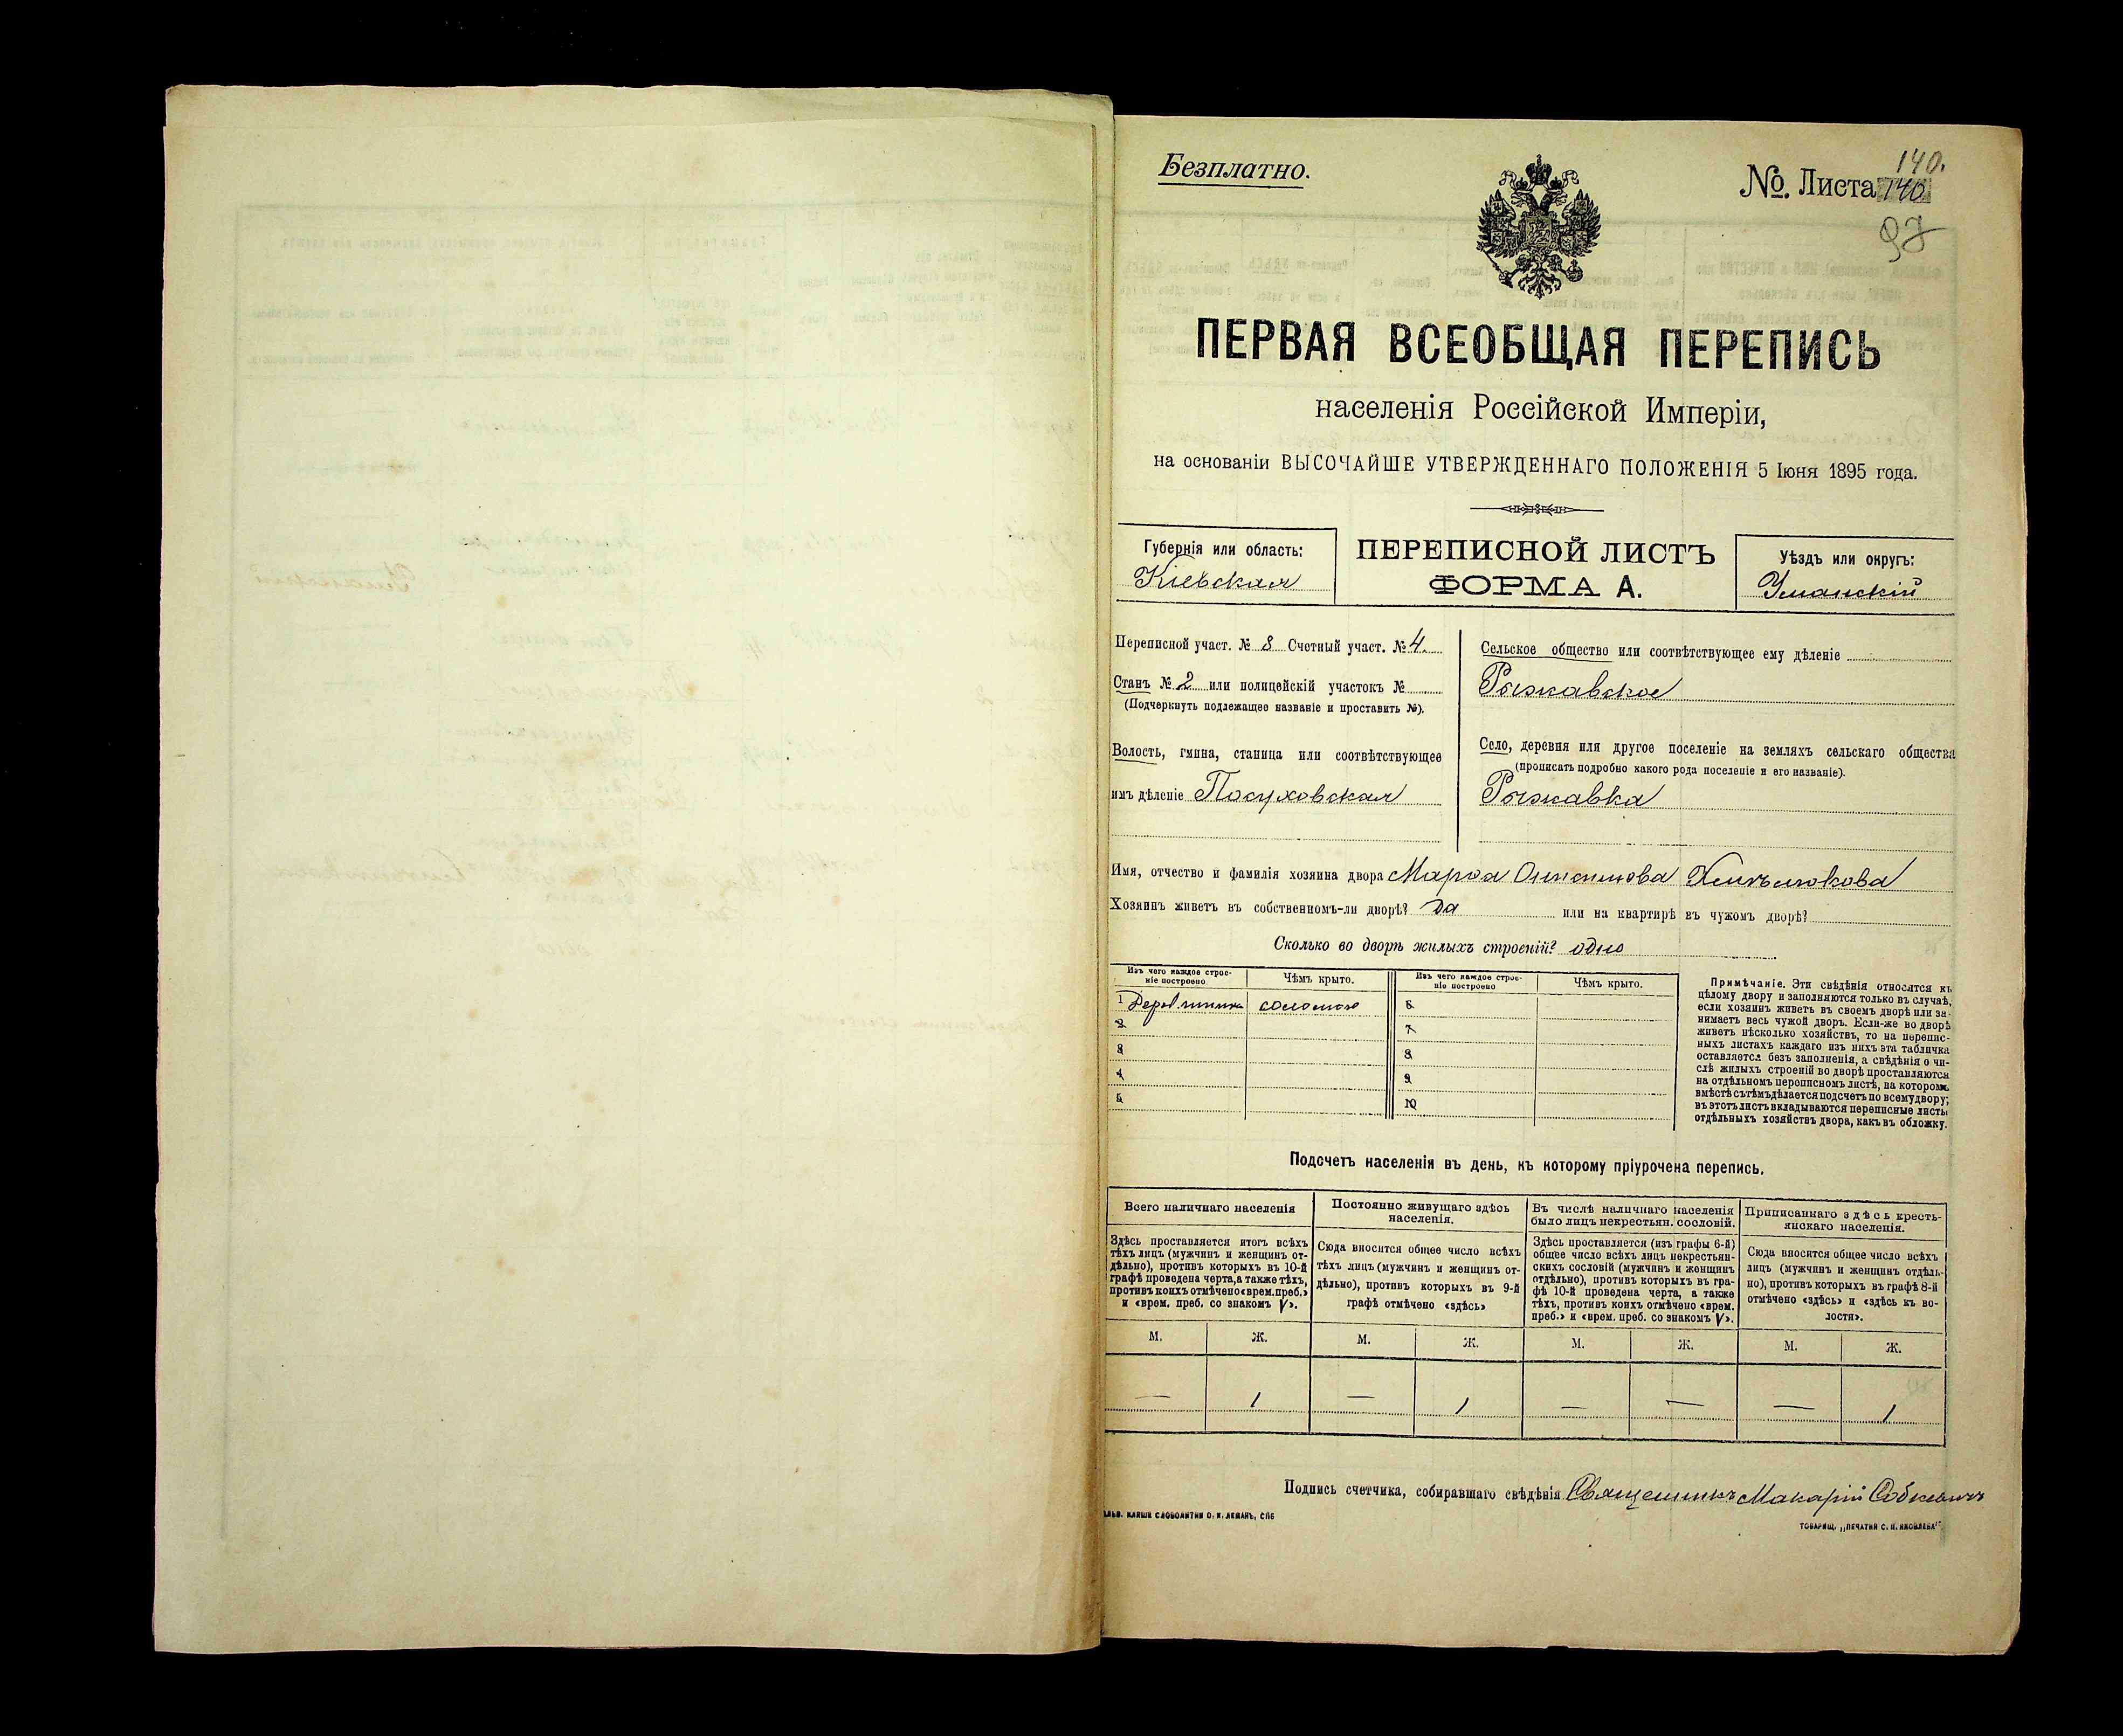 Безплатно.
140.
№. Листа 140
97
ПЕРВАЯ ВСЕОБЩАЯ ПЕРЕПИСЬ
населенія Россійской Имперіи,
на основаніи ВЫСОЧАЙШЕ УТВЕРЖДЕННАГО ПОЛОЖЕНІЯ 5 Іюня 1895 года.
Губернія или область:
Кіевская
ПЕРЕПИСНОЙ ЛИСТЪ
ФОРМА А.
Уѣздъ или округъ:
Уманскій
Переписной участ. № 8 Счетный участ. № 4.
Станъ № 2 или полицейскій участокъ №
(Подчеркнуть подлежащее названіе и проставить №).
Волость, гмина, станица или соотвѣтствующее
имъ дѣленіе Посуховская
Сельское общество или соотвѣтствующее ему дѣленіе
Рыжавское
Село, деревня или другое поселеніе на земляхъ сельскаго общества
(прописать подробно какого рода поселеніе и его названіе).
Рыжавка
Имя, отчество и фамилія хозяина двора Марѳа Онисимова
Хозяинъ живетъ въ собственномъ-ли дворѣ? да или на квартирѣ въ чужомъ дворѣ?
Сколько во дворѣ жилыхъ строеній? одно
Изъ чего каждое строе-
ніе построено
Чѣмъ крыто.
Изъ чего каждое строе-
ніе построено
Чѣмъ крыто.
1 соломою 6
2 7
3 8
4 9
5 10
Примѣчаніе. Эти свѣдѣнія относятся къ
цѣлому двору и заполняются только въ случаѣ,
если хозяинъ живетъ въ своемъ дворѣ или за-
нимаетъ весь чужой дворъ. Если-же во дворѣ
живетъ нѣсколько хозяйствъ, то на перепис-
ныхъ листахъ каждаго изъ нихъ эта табличка
оставляется безъ заполненія, а свѣдѣнія о чи-
слѣ жилыхъ строеній во дворѣ проставляются
на отдѣльномъ переписномъ листѣ, на которомъ
вмѣстѣ съ тѣмъ дѣлается подсчетъ по всему двору;
въ этотъ листъ вкладываются переписные листы
отдѣльныхъ хозяйствъ двора, какъ въ обложку.
Подсчетъ населенія въ день, къ которому пріурочена перепись.
Всего наличнаго населенія
Здѣсь проставляется итогъ всѣхъ
тѣхъ лицъ (мужчинъ и женщинъ от-
дѣльно), противъ которыхъ въ 10-й
графѣ проведена черта, а также тѣхъ,
противъ коихъ отмѣчено «врем. преб.»
и «врем. преб. со знакомъ V».
Постоянно живущаго здѣсь
населенія.
Сюда вносится общее число всѣхъ
тѣхъ лицъ (мужчинъ и женщинъ от-
дѣльно), противъ которыхъ въ 9-й
графѣ отмѣчено «здѣсь»
Въ числѣ наличнаго населенія
было лицъ некрестьян. сословій.
Здѣсь проставляется (изъ графы 6-й)
общее число всѣхъ лицъ некрестьян-
скихъ сословій (мужчинъ и женщинъ
отдѣльно), противъ которыхъ въ гра-
фѣ 10-й проведена черта, а также
тѣхъ, противъ коихъ отмѣчено «врем.
преб.» и «врем. преб. со знакомъ V».
Приписаннаго здѣсь кресть-
янскаго населенія.
Сюда вносится общее число всѣхъ
лицъ (мужчинъ и женщинъ отдѣль-
но), противъ которыхъ въ графѣ 8-й
отмѣчено «здѣсь» и «здѣсь къ во-
лости».
М. Ж. М. Ж. М. Ж. М. Ж.
— 1 — 1 — — — 1
Подпись счетчика, собиравшаго свѣдѣнія Священникъ Макарій Собкевичъ
ТОВАРИЩ. „ПЕЧАТНЯ С. П. ЯКОВЛЕВА".